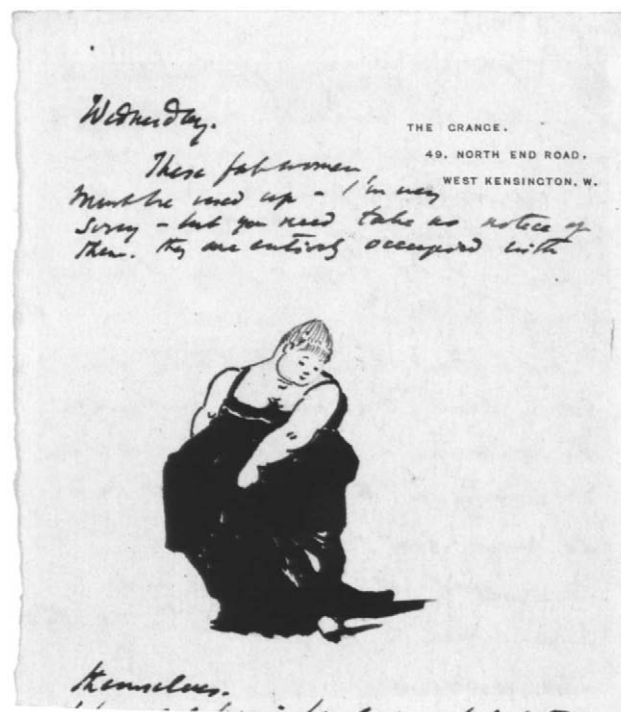 Wednesday.
THE GRANGE,
49, NORTH END ROAD,
WEST KENSINGTON, W.
These fat women
must be used up - I'm very
sorry - but you need take no notice of
them. they are entirely occupied with
themselves.